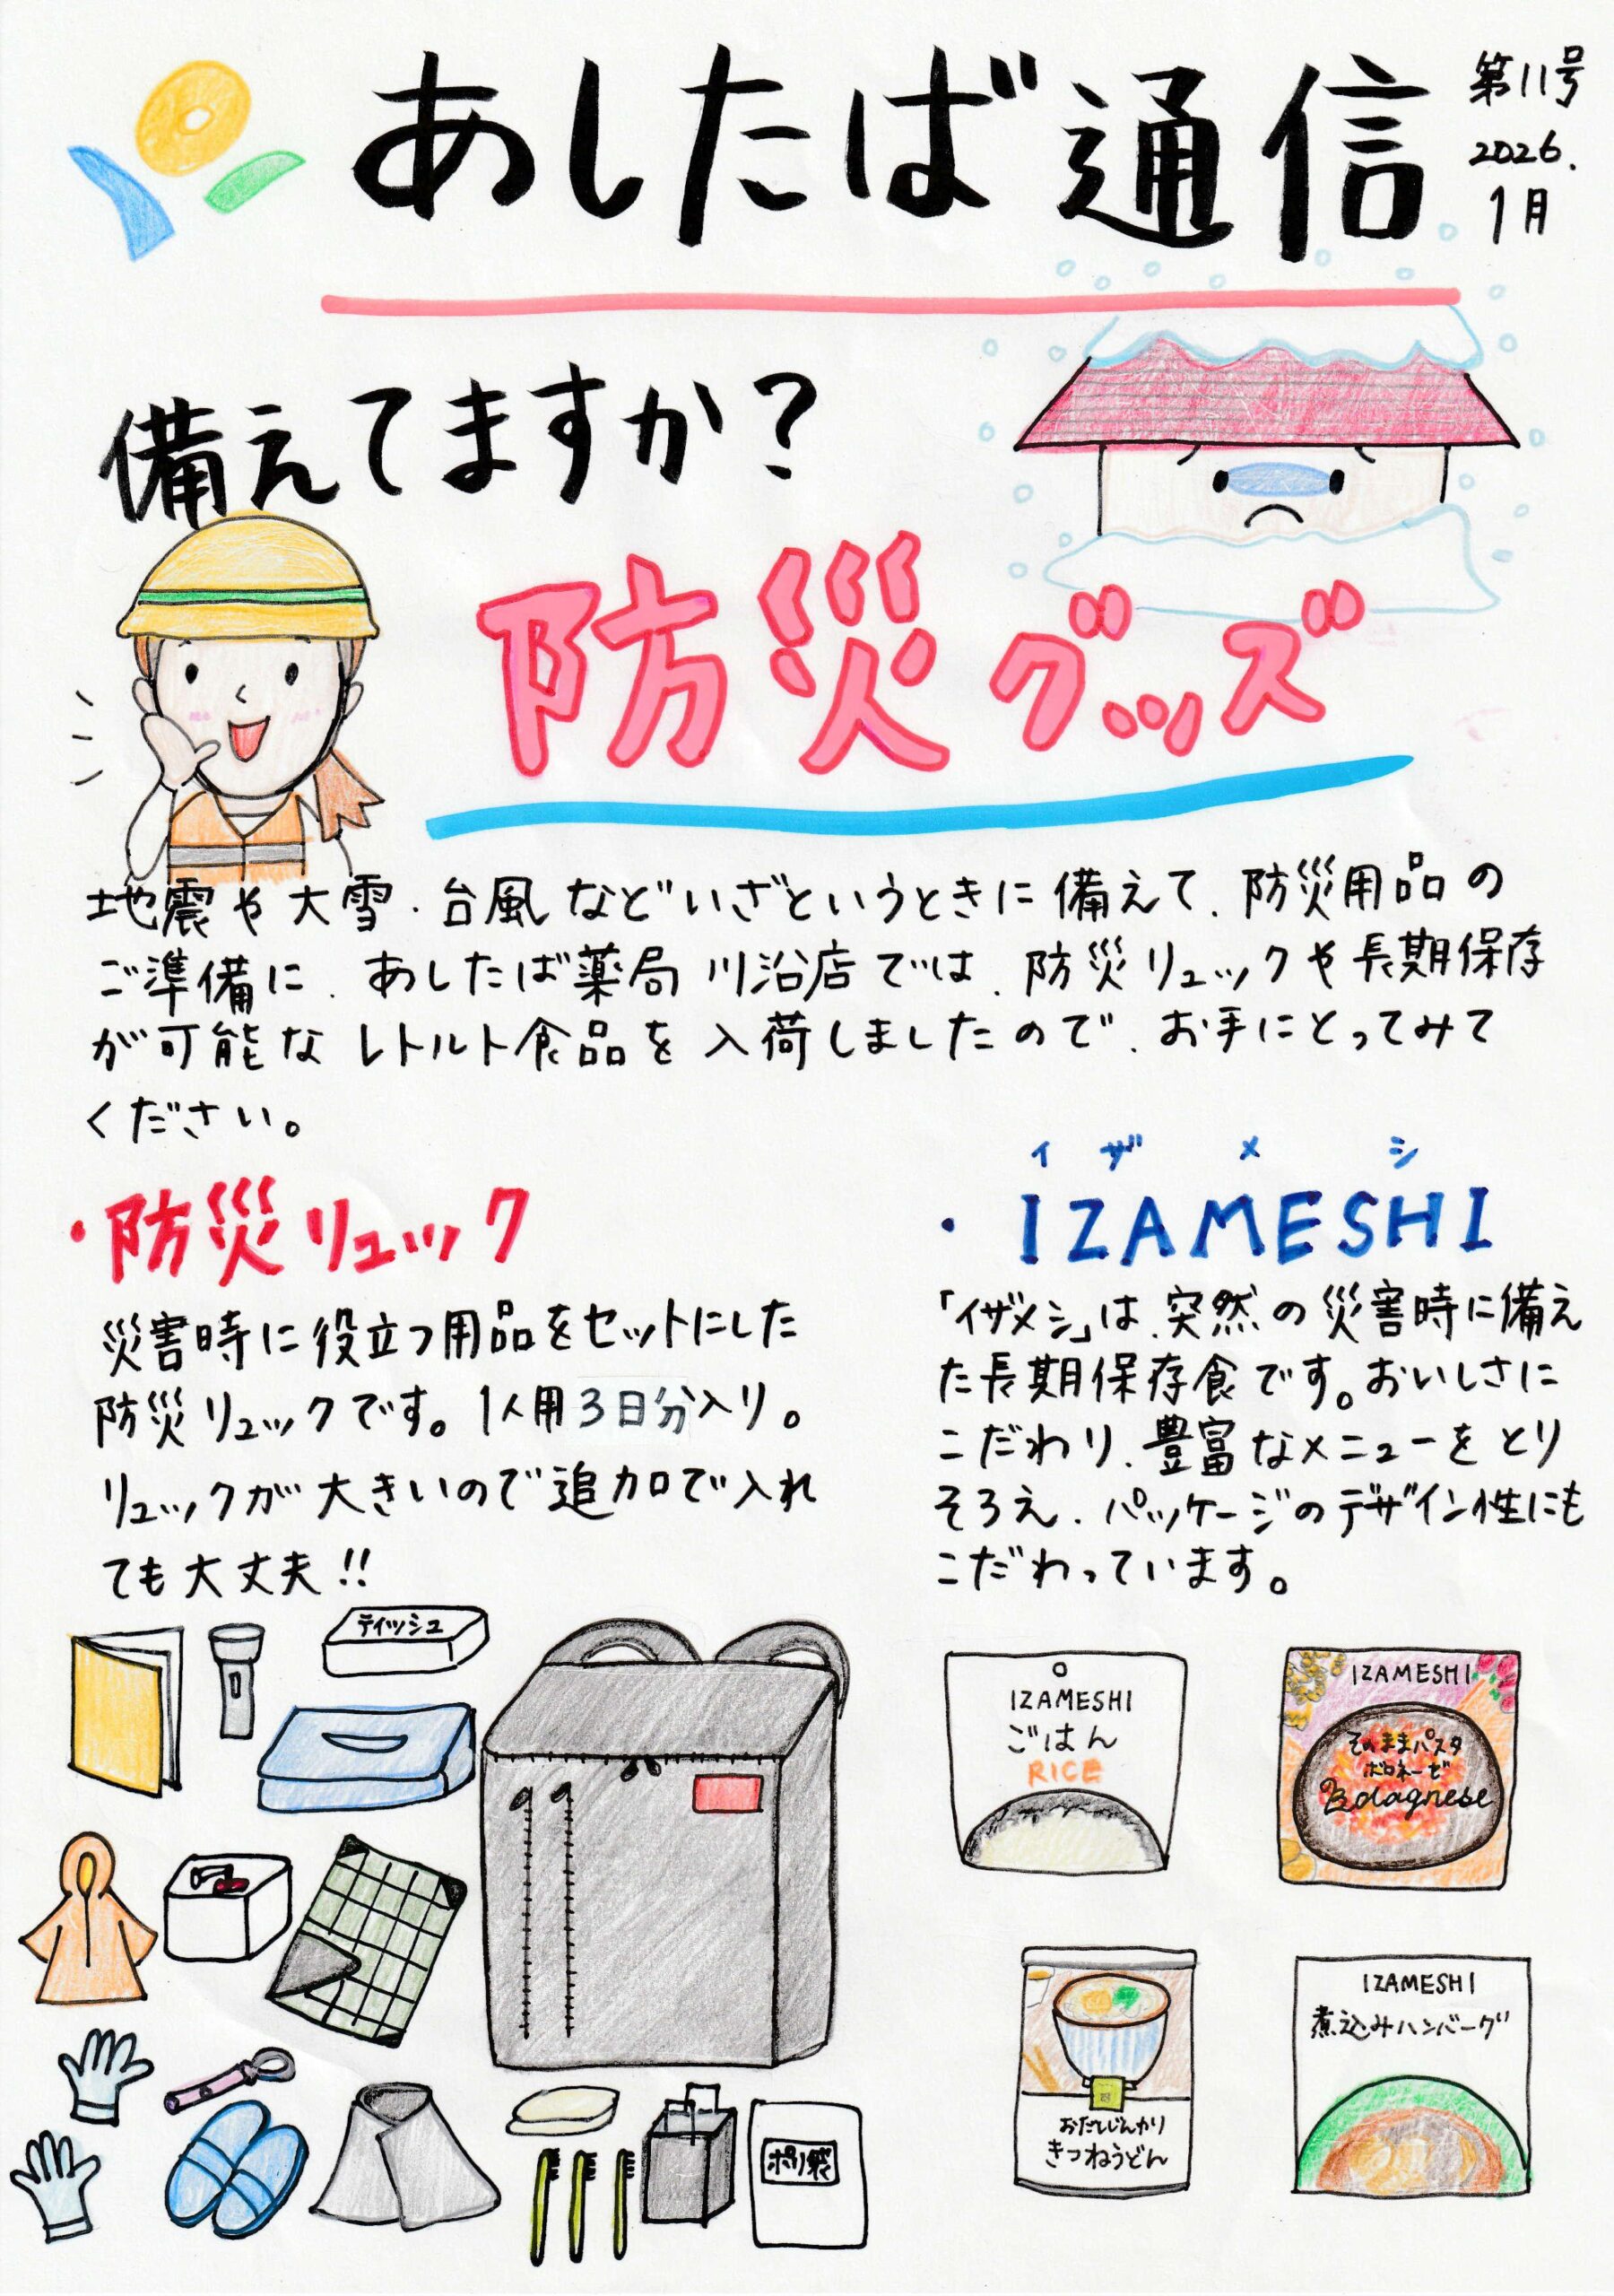 あしたば通信
第11号
2026.
1月
備えてますか？
防災グッズ
地震や大雪、台風などいざというときに備えて、防災用品の
ご準備に、あしたば薬局 川沿店では、防災リュックや長期保存
が可能なレトルト食品を入荷しましたので、お手にとってみて
ください。
・防災リュック
災害時に役立つ用品をセットにした
防災リュックです。1人用3日分入り。
リュックが大きいので追加で入れ
ても大丈夫!!
イザメシ
・IZAMESHI
「イザメシ」は、突然の災害時に備え
た長期保存食です。おいしさに
こだわり、豊富なメニューをとり
そろえ、パッケージのデザイン性にも
こだわっています。
ティッシュ
ポリ袋
IZAMESHI
ごはん
RICE
IZAMESHI
そのままパスタ
ボロネーゼ
Bolagnese
おだしじんわり
きつねうどん
IZAMESHI
煮込みハンバーグ